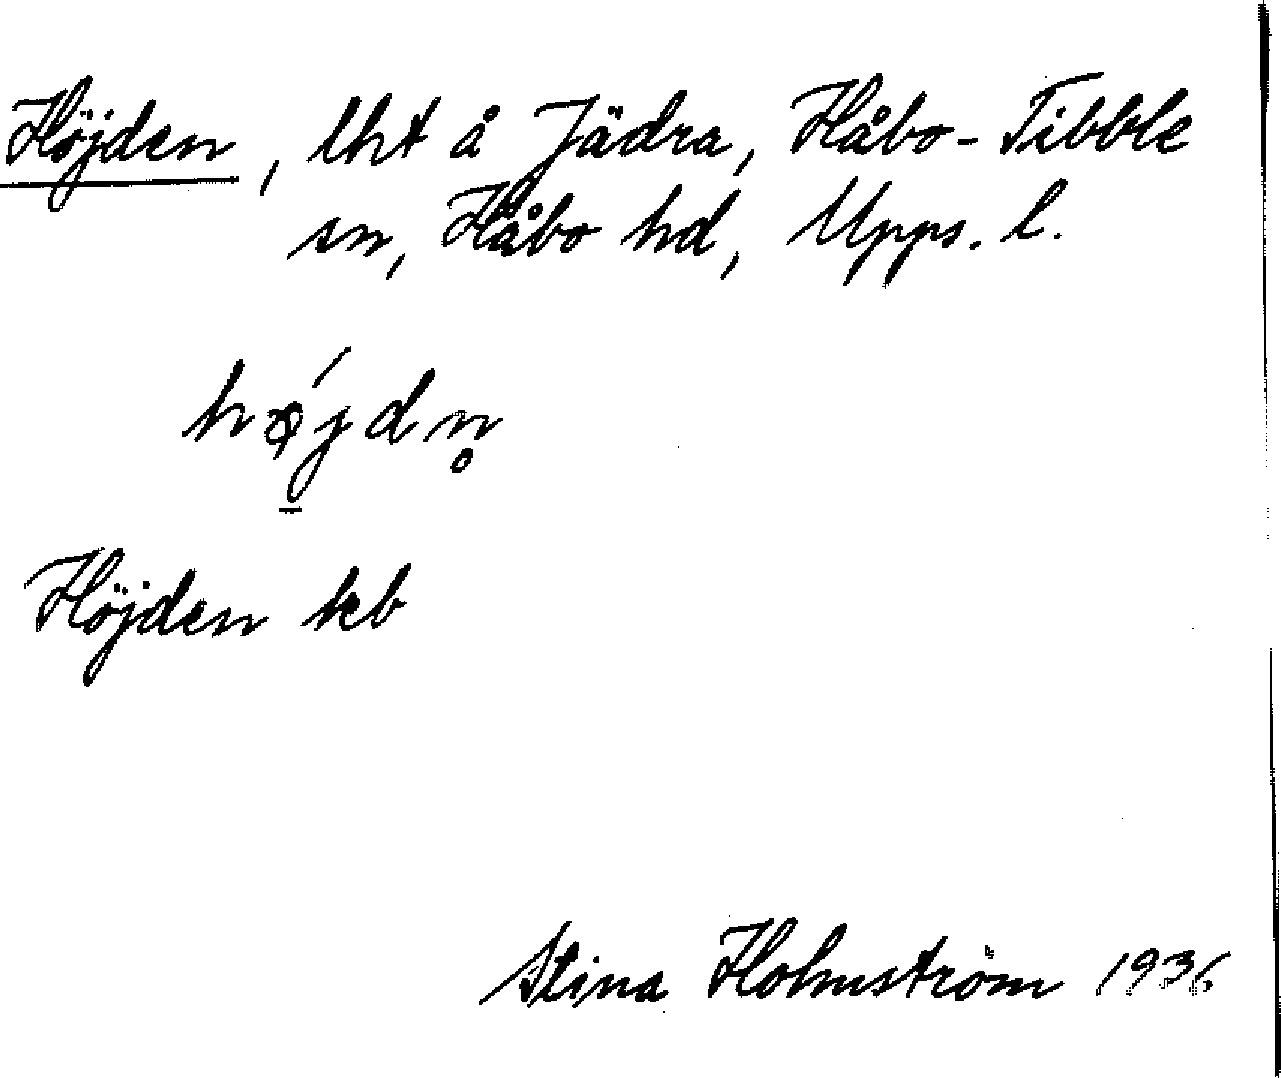 Höjden, lht å Jädra, Håbo-Tibble
sn, Håbo hd, Upps. l.
hǿjdn̥
Höjden kb
Stina Holmström 1936